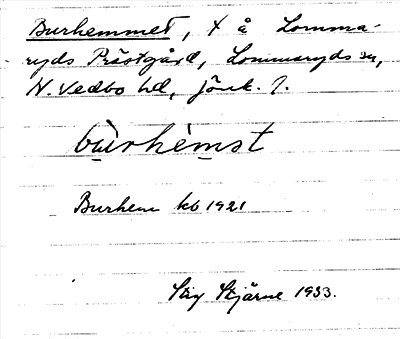 Burhemmet, t å Lomma-
ryds Prästgård, Lommaryds sn,
N. Vedbo hd, Jönk. l.
bùrhèmst
Burhem kb 1921
Stig Stjärne 1933.